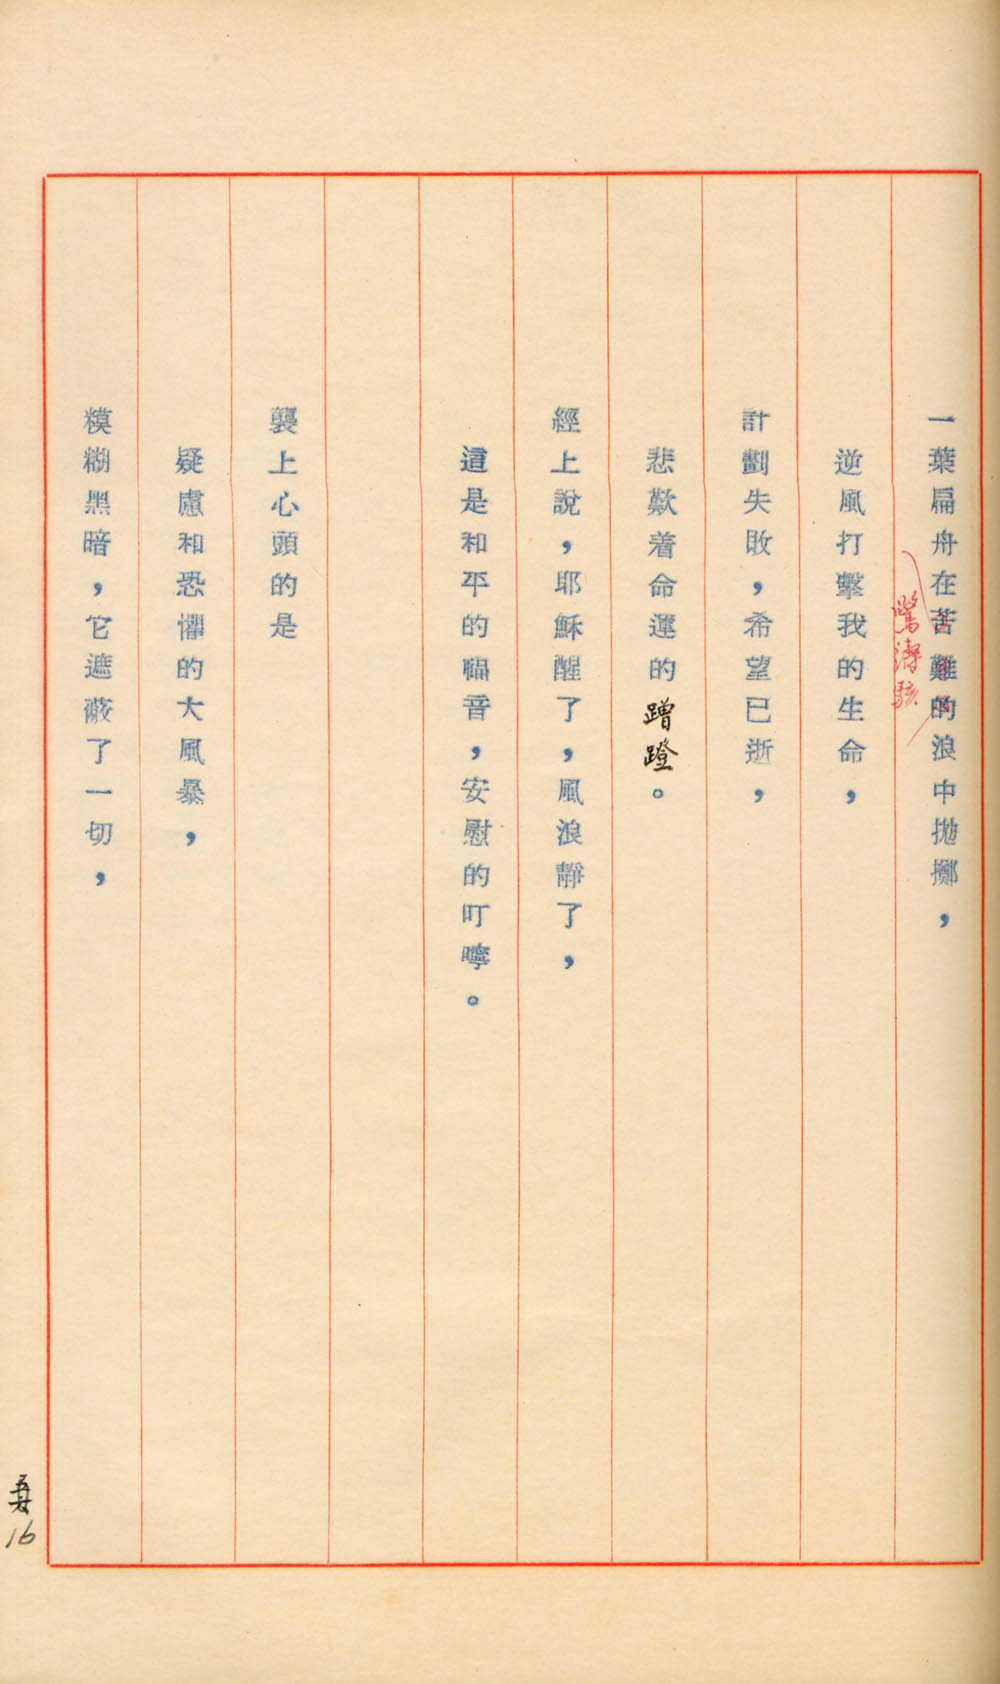 一葉扁舟在苦難的浪中拋擲，
驚濤駭
逆風打擊我的生命，
計劃失敗，希望已逝，
悲歎着命運的蹭蹬。
經上說，耶穌醒了，風浪靜了，
這是和平的福音，安慰的叮嚀。
襲上心頭的是
疑慮和恐懼的大風暴，
糢糊黑暗，它遮蔽了一切，
16